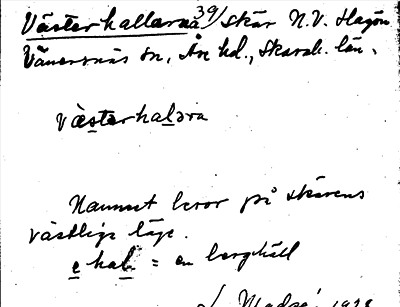 Västerhallarna 39/ skär N.V. Hagön
Vänersnäs sn, Åse hd., Skarab. län.
västərhalᴈra
Namnet beror på skärens
västliga läge.
e hal. = en berghäll